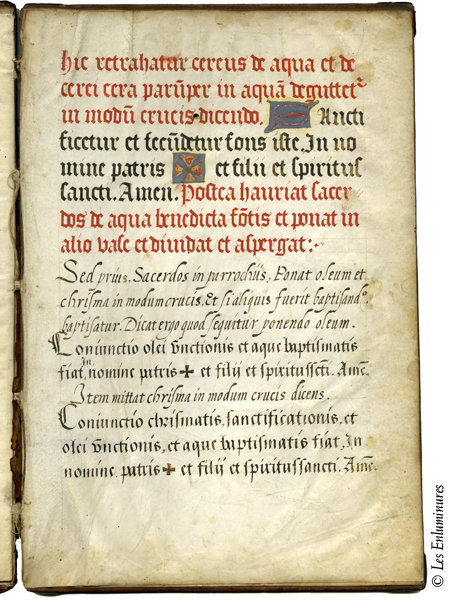 hic retrahatur cereus de aqua et de
cerei cera parũper in aquã deguttet᷒
in modũ crucis dicendo. Sancti
ficetur et fecũdetur fons iste. In no
mine patris ✠ et filii et spiritus
sancti. Amen. Postea hauriat sacer
dos de aqua benedicta fõtis et ponat in
alio vase et dividat et aspergat:~
Sed prius. Sacerdos in parrochiis, Ponat oleum et
chrisma in modum crucis, et si aliquis fuerit baptisand᷒.
baptisatur. Dicat ergo quod sequitur ponendo oleum.
Coniunctio olei vnctionis et aque baptismatis
fiat, In nomine patris ✠ et filij et spiritussctĩ. Amẽ.
Item mittat chrisma in modum crucis dicens.
Coniunctio chrismatis, sanctificationis, et
olei vnctionis, et aque baptismatis fiat, In
nomine patris ✠ et filij et spiritussancti. Amẽ.
© Les Enluminures